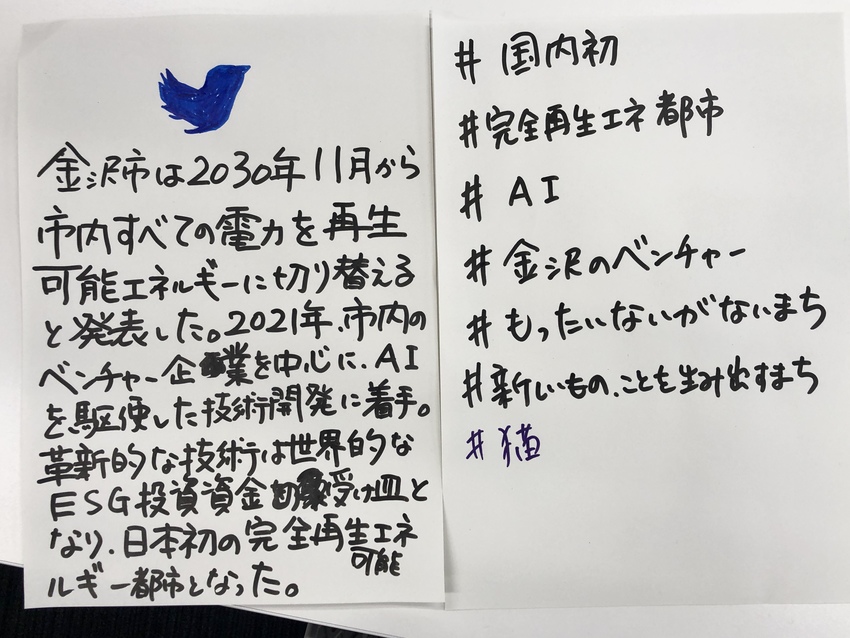 金沢市は2030年11月から
市内すべての電力を再生
可能エネルギーに切り替える
と発表した。2021年、市内の
ベンチャー企業を中心に、AI
を駆使した技術開発に着手。
革新的な技術は世界的な
ESG投資資金の受け皿と
なり、日本初の完全再生可能エネ
ルギー都市となった。
# 国内初
#完全再生エネ都市
# AI
# 金沢のベンチャー
# もったいないがないまち
#新しいもの、ことを生み出すまち
# 猫